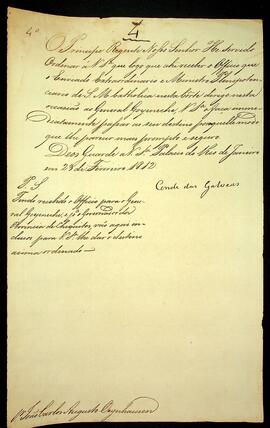 4º
4
O Principe Regente Nosso Senhor He Servido
Ordenar a V. Sª que logo que ahi receber o Officio que
o Enviado Extraordinario e Ministro Plenipoten-
ciario de S. M. Catholica nesta Corte dirige nesta
occasião ao General Goyeneche, V. Sª faça imme-
diatamente passar ao seu destino por aquelle modo
que lhe parecer mais prompto e seguro.
Deos Guarde a V. Sª Palacio do Rio de Janeiro
em 28 de Fevereiro 1812
Conde das Galveas
P. S.
Tendo recebido o Officio para o Gene-
ral Goyeneche, e p.ª o Governador da
Provincia de Chiquitos, vão aqui in-
clusos para V. Sª lhe dar o destino
acima ordenado
Sr João Carlos Augusto Oeynhausen